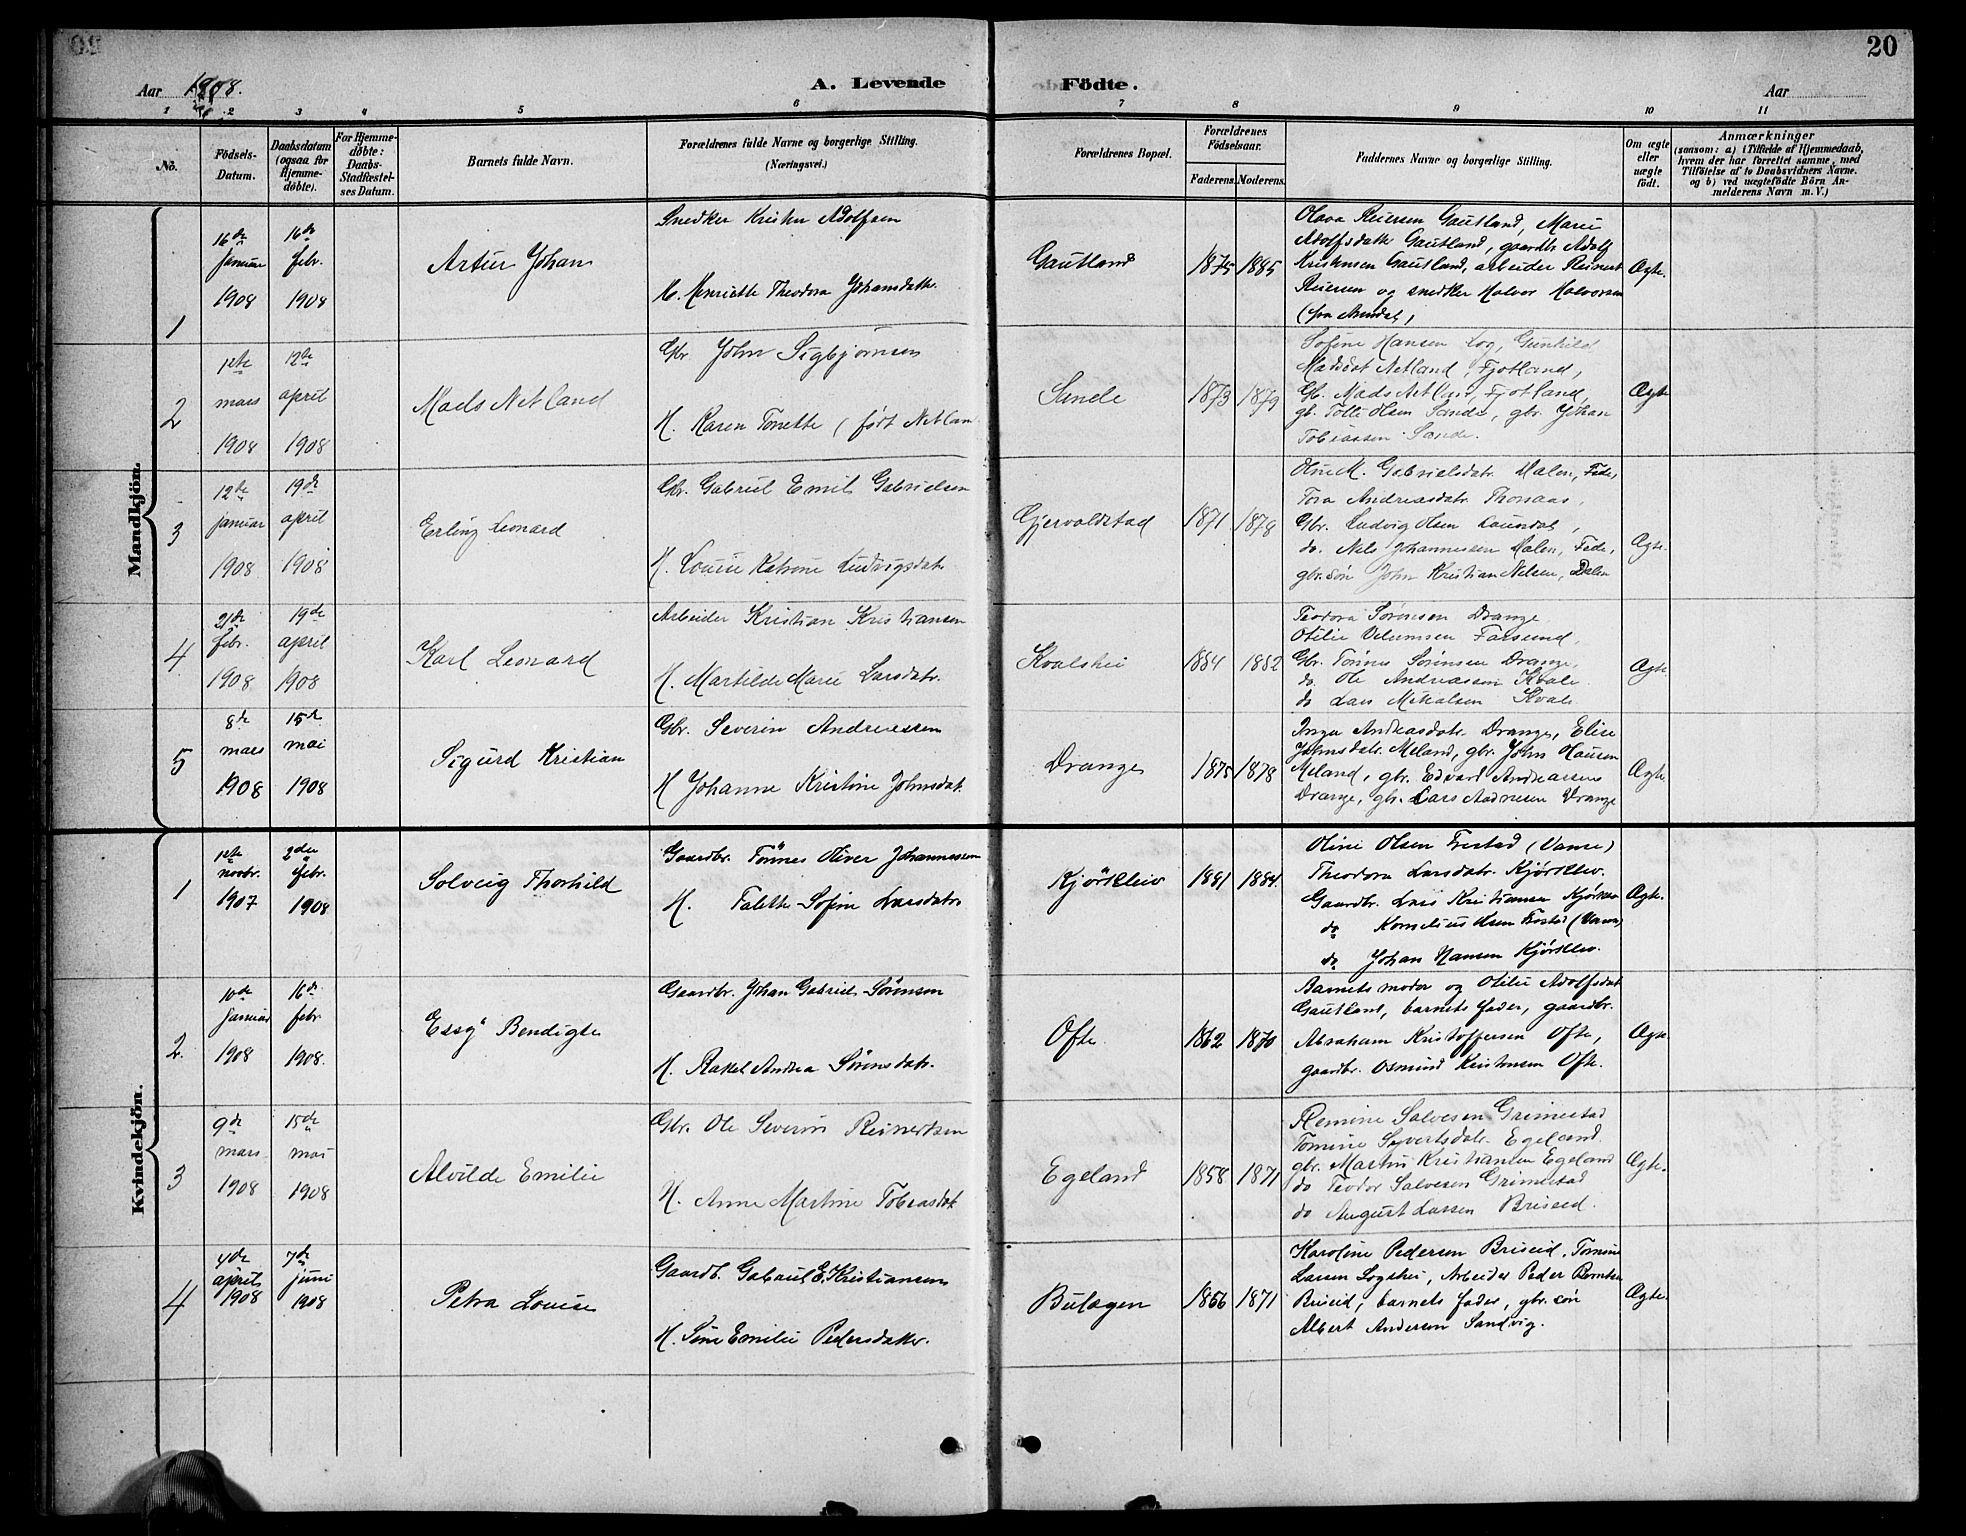 20
Aar 1908.
A. Levende Födte.
Aar
1 2 3 4 5 6 7 8 9 10 11
No.
Födsels-Datum.
Daabsdatum (ogsaa for Hjemme-döbte).
For Hjemme-döbte: Daabs-Stadfæstel-ses Datum.
Barnets fulde Navn.
Forældrenes fulde Navne og borgerlige Stilling.
(Næringsvei.)
Forældrenes Bopæl.
Forældrenes Födselsaar.
Faderens. Moderens.
Faddernes Navne og borgerlige Stilling.
Om ægte eller uægte födt.
Anmærkninger
(saasom: a) i Tilfælde af Hjemmedaab,
hvem der har forrettet samme, med
Tilföielse af to Daabsvidners Navne.
og b) ved uægtefödte Börn An-
melderens Navn m. V.)
Mandkjön.
1
16de januar 1908
16de febr. 1908
Artur Johan
Snedker Kristen Adolfsen
H. Henriette Theodora Johansdatter
Gautland
1875 1885
Olava Reiersen Gautland, Marie
Adolfsdatter Gautland, gaardbr. Adolf
Kristensen Gautland, arbeider Reinert
Reiersen og snedker Halvor Halvorsen
(fra Arendal)
Ægte.
2
1ste mars 1908
12te april 1908
Mads Netland
Gbr John Sigbjørnsen
H. Karen Tonette (født Netlan
Sande
1873 1879
Sofine Hansen Log, Gunhild
Madsdat Netland, Fjotland,
Gb. Mads Netland, Fjotland,
gb. Tolle Olsen Sande, gbr. Johan
Tobiassen Sande.
Ægte
3
12te januar 1908
19de april 1908
Erling Leonard
Gbr. Gabriel Emil Gabrielsen
H. Louise Katrine Ludvigsdatr
Gjervoldstad
1871 1878
Oline M. Gabrielsdatr. Malen, Fede,
Tora Andreasdatr. Thorsaas,
Gbr. Ludvig Olsen Laundal,
do. Nels Johannessen Malen, Fede,
gbr. søn John Kristian Nelsen, Dalen
Ægte.
4
21de febr. 1908
19de april 1908
Karl Leonard
Arbeider Kristian Kristiansen
H. Martilde Marie Larsdatr.
Kvalshei
1884 1882
Teodora Sørensen Drange
Otilie Velumsen Farsund,
Gbr. Tønnes Sørensen Drange,
do. Ole Andreassen Kvale
do Lars Mikalsen Kvale
Ægte
5
8de mars 1908
15de mai 1908
Sigurd Kristian
Gbr. Severin Andreassen
H Johanne Kristine Johnsdat.
Drange
1875 1878
Inga Andreasdatr. Drange, Elise
Johnsdatr. Meland, gbr. John Hansen
Meland, gbr. Edvard Andreassen
Drange, gbr. Lars Aadnesen Drange
Ægte
Kvindekjön.
1
1ste novbr. 1907
2den febr. 1908
Solveig Thorhild
Gaardbr. Tønnes Oliver Johannessen
H. Talette Sofine Larsdatr.
Kjørkleiv
1881 1884.
Oline Olsen Frestad (Vanse)
Theodora Larsdatr. Kjørklev.
Gaardbr. Lars Kristiansen Kjørklev
do Kornelius Olsen Frestad (Vanse)
do Johan Hansen Kjørklev.
Ægte.
2.
10de januar 1908
16de febr. 1908.
Essy Bendigte
Gaardbr. Johan Gabriel Sørensen
H. Rakel Andrea Sørensdatr.
Ofte
1862 1870
Barnets moder og Otilie Adolfsdat
Gautland, barnets fader, gaardbr.
Abraham Kristoffersen Ofte,
gaardbr. Osmund Kristensen Ofte.
Ægte
3
9de mars 1908
15de mai 1908
Alvilde Emilie
Gbr. Ole Severin Reinertsen
H. Anne Martine Tobiasdat
Egeland
1858 1871
Remine Salvesen Grimestad
Tomine Syvertsdatr. Egeland.
gbr. Martin Kristiansen Egeland
do Teodor Salvesen Grimestad
do August Larsen Briseid.
Ægte.
4
4de april 1908
7de juni 1908
Petra Louise
Gaardb. Gabriel E. Kristiansen
H. Sine Emilie Pedersdatter.
Bulægen
1866 1871
Karoline Pedersen Briseid, Tomine
Larsen Logshei, Arbeider Peder Berntsen
Briseid, barnets fader, gbr. søn
Albert Andersen Sandvig.
Ægte.